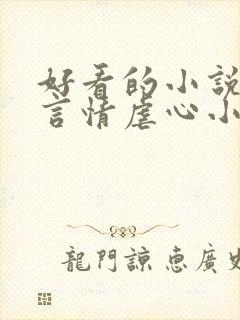 好看的小說
言情虐心小
龍門諒惠廣